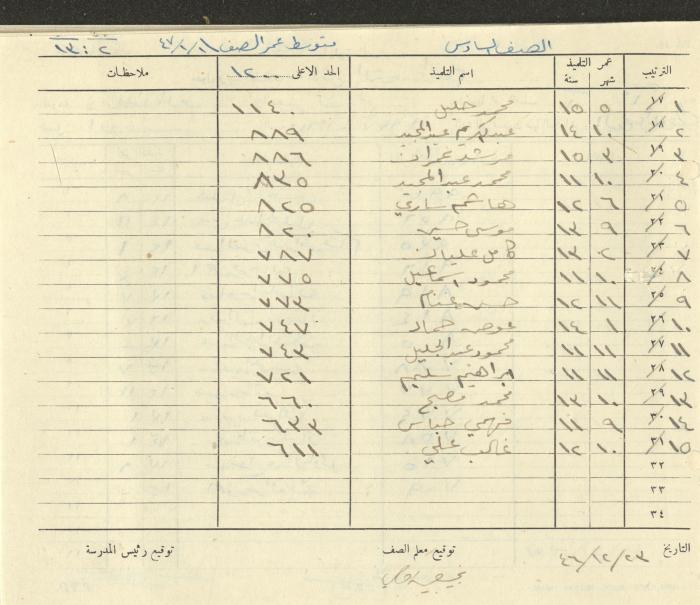 الصف السادس متوسط عمر الصف ٤٧/٢/١ ١٣:٢
الترتيب عمر التلميذ شهر سنة اسم التلميذ الحد الاعلى ١٢٠٠ ملاحظات
١٧ ١ ٥ ١٥ محمد خليل ١١٤٠
١٨ ٢ ١٠ ١٤ عبدالكريم عبدالمجيد ٨٨٩
١٩ ٣ ٣ ١٥ مرشد عمران ٨٨٦
٢٠ ٤ ١٠ ١١ محمد عبدالمجيد ٨٣٥
٢١ ٥ ٦ ١٢ هاشم ساري ٨٢٥
٢٢ ٦ ٩ ١٣ موسى حسين ٨٢٠
٢٣ ٧ ٢ ١٣ كامل عليان ٧٨٧
٢٤ ٨ ١٠ ١١ محمود اسماعيل ٧٧٥
٢٥ ٩ ١١ ١٢ حسن غنام ٧٧٣
٢٦ ١٠ ١ ١٤ عوض حماد ٧٤٧
٢٧ ١١ ١١ ١١ محمود عبدالجليل ٧٤٣
٢٨ ١٢ ١١ ١١ ابراهيم سليم ٧٢١
٢٩ ١٣ ١٠ ١٣ محمد مصبح ٦٦٠
٣٠ ١٤ ٩ ١١ فهمي ٦٣٣
٣١ ١٥ ١٠ ١٢ غالب علي ٦١١
٣٢
٣٣
٣٤
التاريخ ٤٦/١٢/٢٣ توقيع معلم الصف توقيع رئيس المدرسة